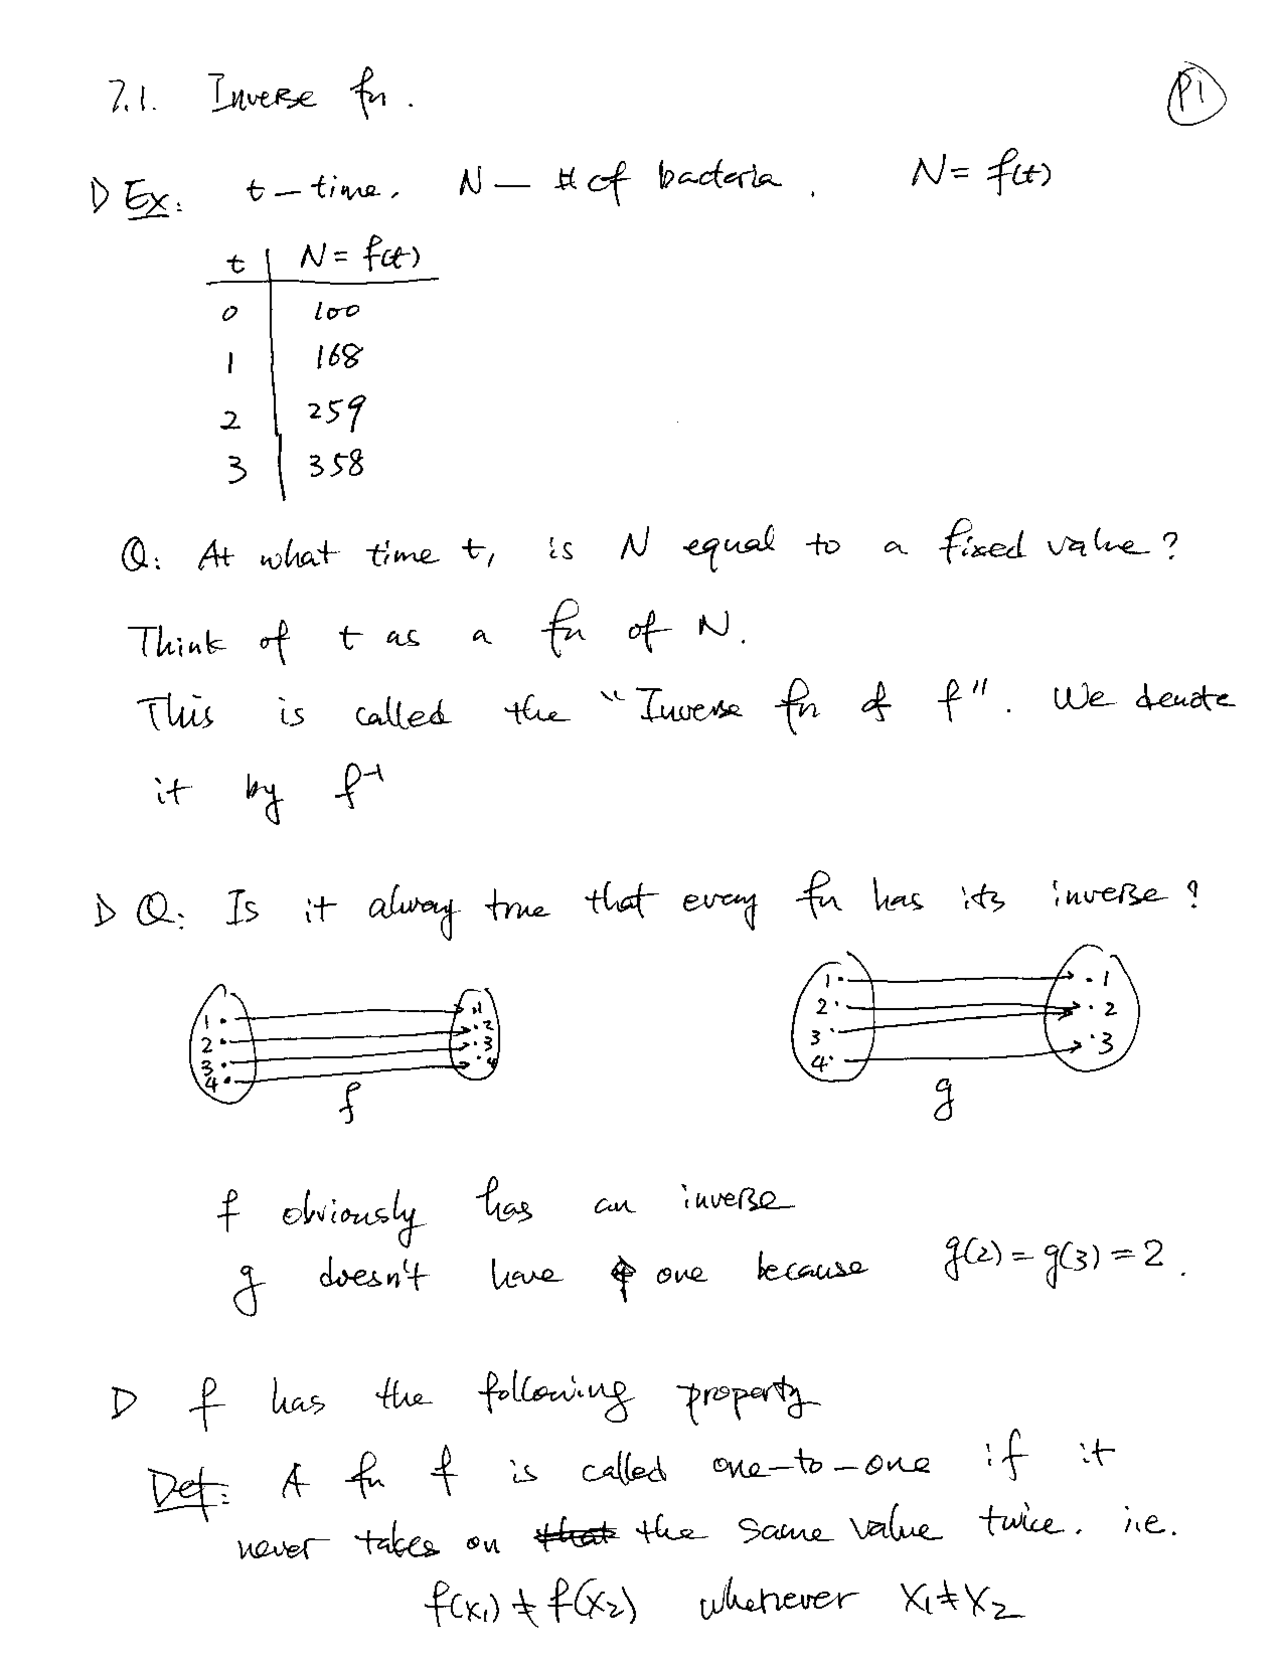 7.1. Inverse fn.
P1
Ex: t – time, N – # of bacteria. N = f(t)
t N = f(t)
0 100
1 168
2 259
3 358
Q: At what time t, is N equal to a fixed value?
Think of t as a fn of N.
This is called the "Inverse fn of f". We denote
it by f⁻¹
Q: Is it alway true that every fn has its inverse?
1 1
2 2
3 3
4 4
f
1 1
2 2
3 3
4
g
f obviously has an inverse
g doesn't have one because g(2) = g(3) = 2.
f has the following property
Def: A fn f is called one-to-one if it
never takes on that the same value twice. i.e.
f(x₁) ≠ f(x₂) whenever x₁ ≠ x₂